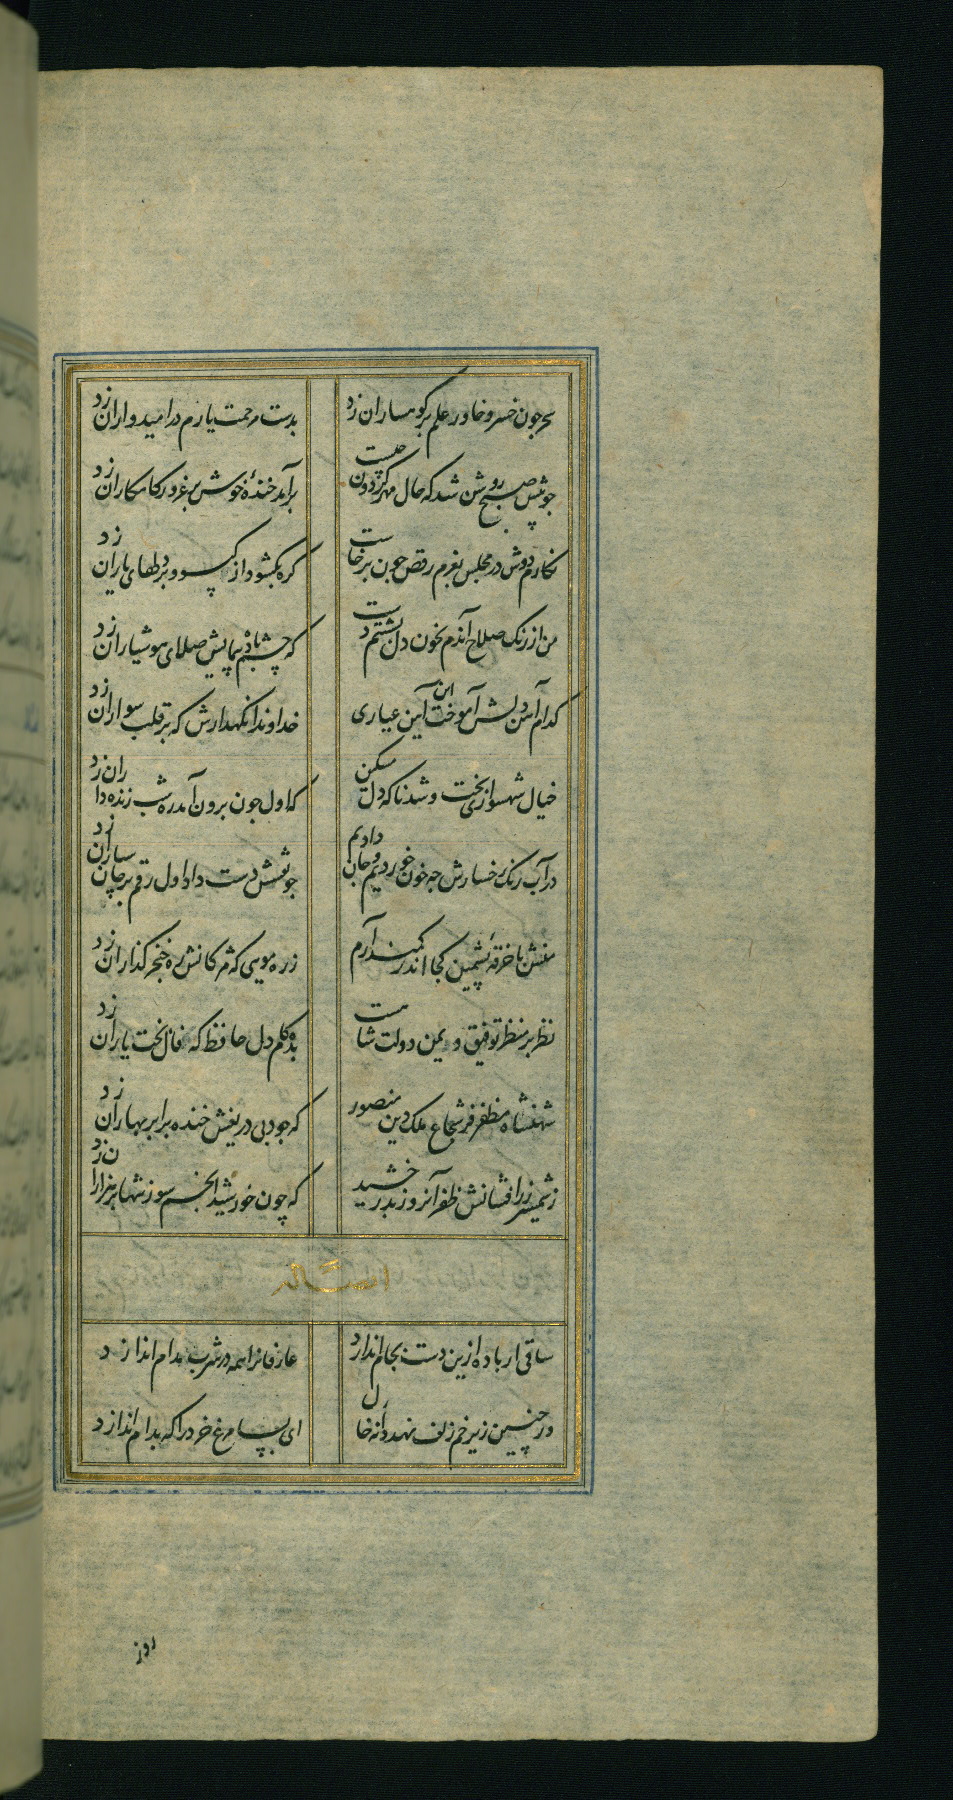 سحر چون خسرو خاور علم بر کوهساران زد
بدست مرحمت یارم در امیدواران زد
چو پیش صبح روشن شد که حال مهر گردون چیست
برآمد خندهٔ خوش بر غرور کامکاران زد
نکارم دوش در مجلس بعزم رقص چون برخاست
کره بکشود از کیسو و بر دلهای یاران زد
من از رنک صلاح آندم بخون دل بشستم دست
که چشم باده پیمایش صلا بر هوشیاران زد
کدام آهن دلش آموخت این آیین عیاری
خداوندا نکهدارش که بر قلب سواران زد
خیال شهسواری بخت و شد ناکه دل مسکین
که اول چون برون آمد ره شب زنده داران زد
در آب و رنک رخسارش چه خون خوردیم و جان دادیم
چو نقشش دست داد اول رقم بر جان سپاران زد
منش با خرقهٔ پشمین کجا اندر کمند آرم
زره مویی که مژکانش ره خنجر کذاران زد
نظر بر منظر توفیق و یمن دولت شاهست
بده کام دل حافظ که فال بخت یاران زد
شهنشاه مظفر فر شجاع ملک دین منصور
که جود بی دریغش خنده بر ابر بهاران زد
ز شمشیر زرافشانش ظفر آنروز بدرخشید
که چون خورشید انجم سوز تنها بر هزاران زد
ساقی ار باده ازین دست بجام اندازد
عارفانرا همه در شرب مدام اندازد
ور چنین زیر خم زلف نهد دانه خال
ای بسا مرغ خرد را که بدام اندازد
روز